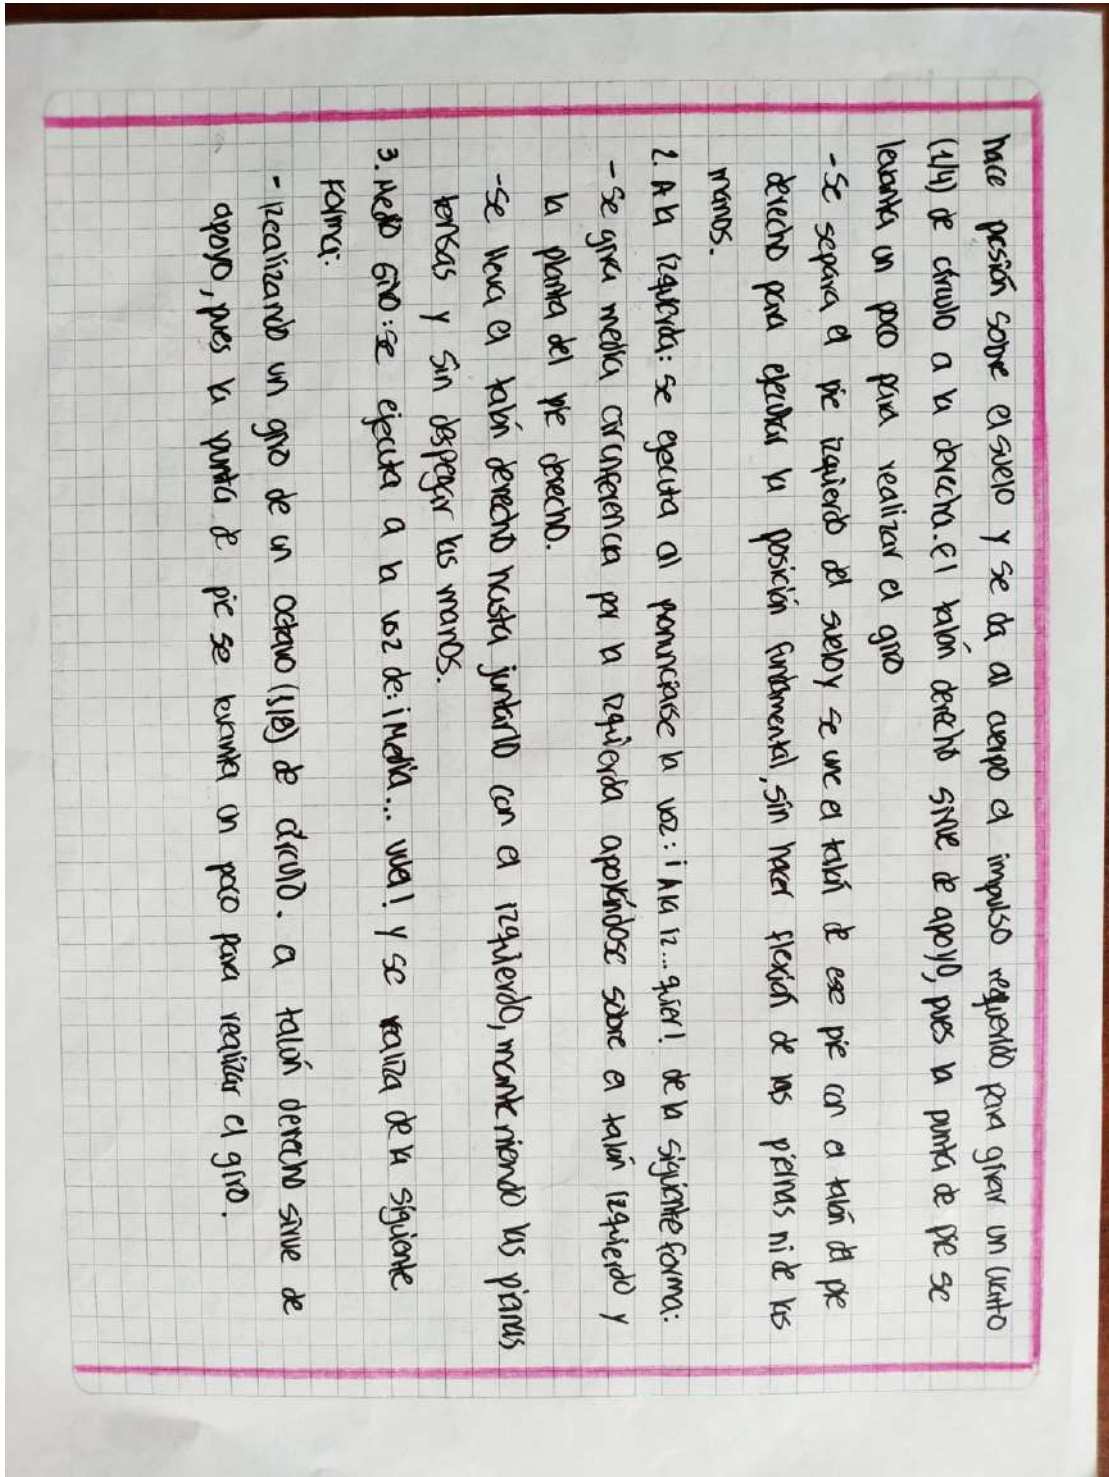 hace posión sobre el suelo y se da al cuerpo el impulso requerido para girar un cuarto
(1/4) de círculo a la derecha. El talón derecho sirve de apoyo, pues la punta de pie se
levanta un poco para realizar el giro
- Se separa el pie izquierdo del suelo y se une el talón de ese pie con el talón del pie
derecho para ejecutar la posición fundamental, sin hacer flexión de las piernas ni de las
manos.
2. A la izquierda: se ejecuta al pronunciarse la voz: ¡A la iz... quier! de la siguiente forma:
- Se gira media circunferencia por la izquierda apollándose sobre el talón izquierdo y
la planta del pie derecho.
- Se lleva el talón derecho hasta juntarlo con el izquierdo, manteniendo las piernas
tensas y sin despegar las manos.
3. Medio Giro: se ejecuta a la voz de: ¡Media... vuel! y se realiza de la siguiente
forma:
- Realizando un giro de un octavo (1/8) de círculo. a talón derecho sirve de
apoyo, pues la punta de pie se levanta un poco para realizar el giro.